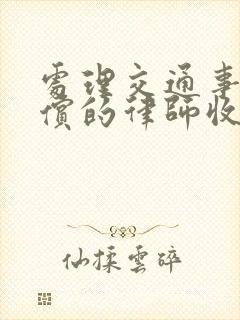 處理交通事
償的律師收
仙揉雲碎